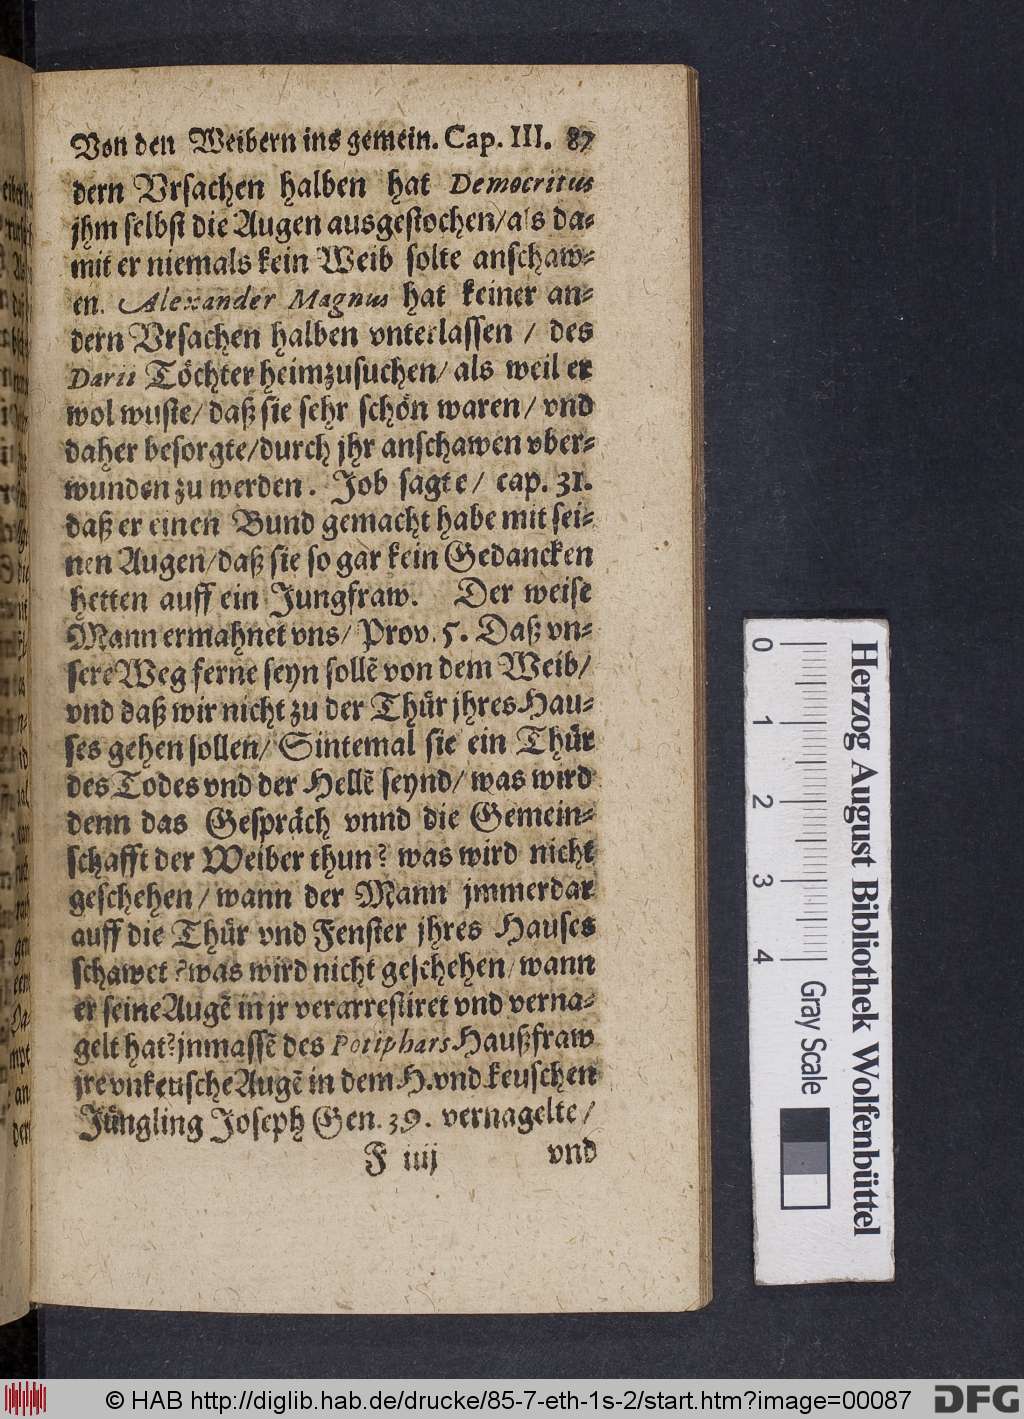 Von den Weibern ins gemein. Cap. III. 87
dern Vrsachen halben hat Democritus
jhm selbst die Augen ausgestochen/als da-
mit er niemals kein Weib solte anschaw-
en. Alexander Magnus hat keiner an-
dern Vrsachen halben vnterlassen / des
Darii Töchter heimzusuchen/ als weil er
wol wuste/ daß sie sehr schön waren/ vnd
daher besorgte/durch jhr anschawen vber-
wunden zu werden. Job sagte/ cap. 31.
daß er einen Bund gemacht habe mit sei-
nen Augen/daß sie so gar kein Gedancken
hetten auff ein Jungfraw. Der weise
Mann ermahnet vns/ Prov. 5. Daß vn-
sere Weg ferne seyn sollẽ von dem Weib/
vnd daß wir nicht zu der Thür jhres Hau-
ses gehen sollen/ Sintemal sie ein Thür
des Todes vnd der Hellẽ seynd/ was wird
denn das Gespräch vnnd die Gemein-
schafft der Weiber thun? was wird nicht
geschehen/ wann der Mann jmmerdar
auff die Thür vnd Fenster jhres Hauses
schawet? was wird nicht geschehen/ wann
er seine Augẽ in jr verarrestiret vnd verna-
gelt hat? jnmassẽ des Potiphars Haußfraw
jre vnkeusche Augẽ in dem H. vnd keuschen
Jüngling Joseph Gen. 39. vernagelte/
F iiij vnd
Herzog August Bibliothek Wolfenbüttel
0 1 2 3 4
Gray Scale
© HAB http://diglib.hab.de/drucke/85-7-eth-1s-2/start.htm?image=00087
DFG